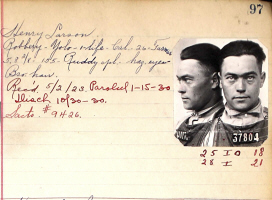 97
Henry Larson
Robbery - Yolo - Life. Cal. 26.
5. 135. Ruddy haz. eyes
Bro. hair.
Recd. 5/2/23. Paroled 1-15-30
Disch 10/30-30.
Sacto. # 9426.
37804
25 I O 18
28 I 21